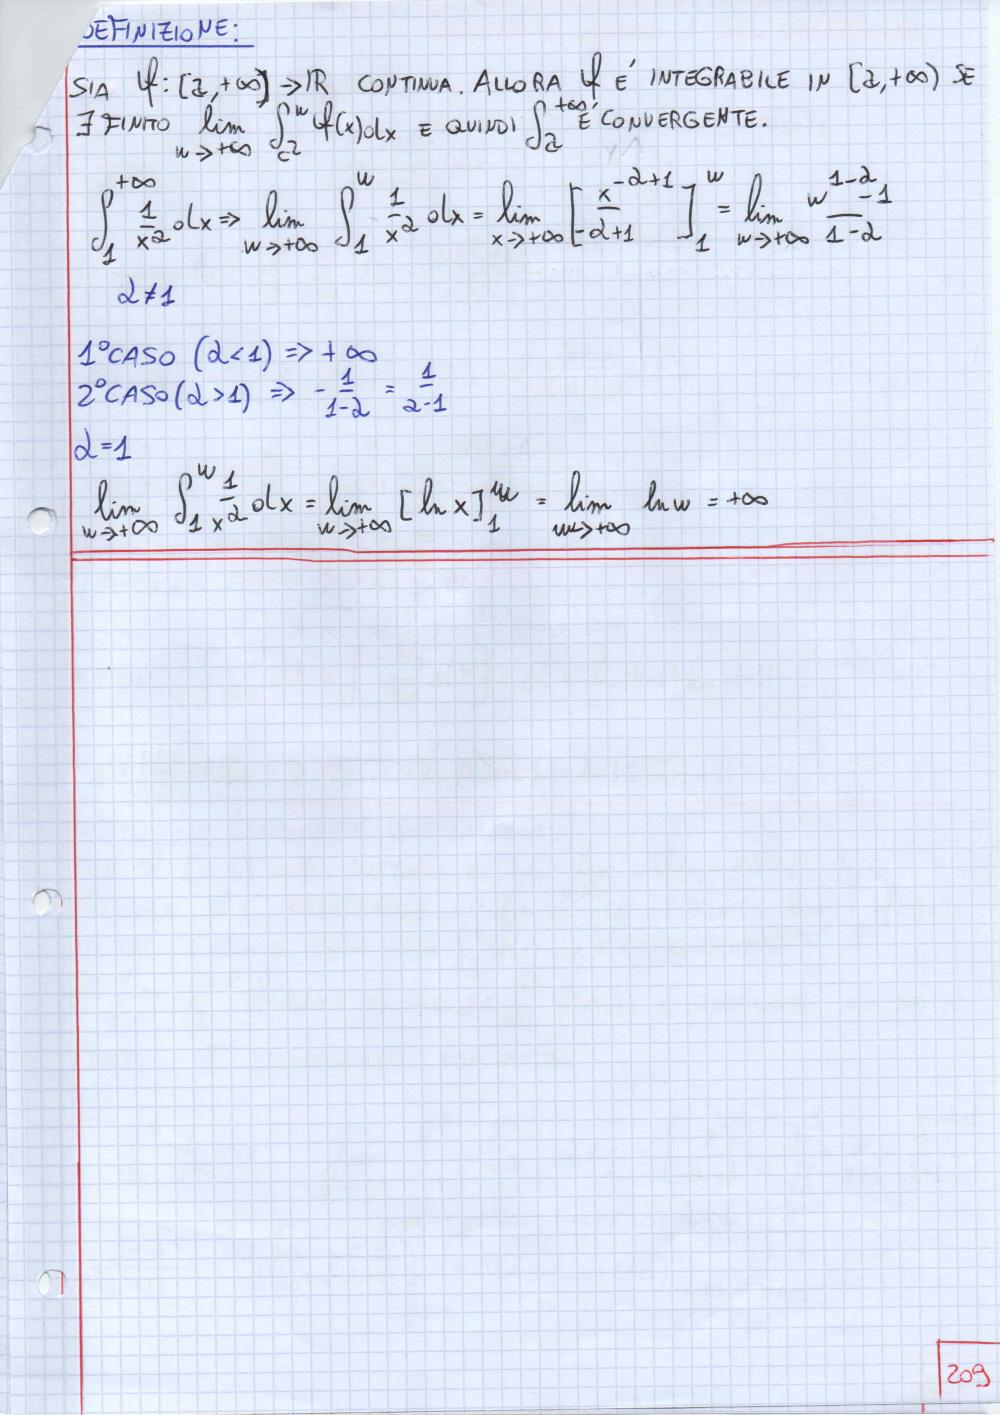 DEFINIZIONE:
SIA f: [a,+∞] → IR CONTINUA. ALLORA f E' INTEGRABILE IN [a,+∞) SE
∃ FINITO lim w→+∞ ∫_a^w f(x)dx E QUINDI ∫_a^{+∞} E' CONVERGENTE.
∫_1^{+∞} 1/x^α dx => lim w→+∞ ∫_1^w 1/x^α dx = lim x→+∞ [x^{-α+1}/(-α+1)]_1^w = lim w→+∞ (w^{1-α}-1)/(1-α)
α≠1
1° CASO (α<1) => +∞
2° CASO (α>1) => -1/(1-α) = 1/(α-1)
α=1
lim w→+∞ ∫_1^w 1/x^α dx = lim w→+∞ [ln x]_1^w = lim w→+∞ ln w = +∞
209